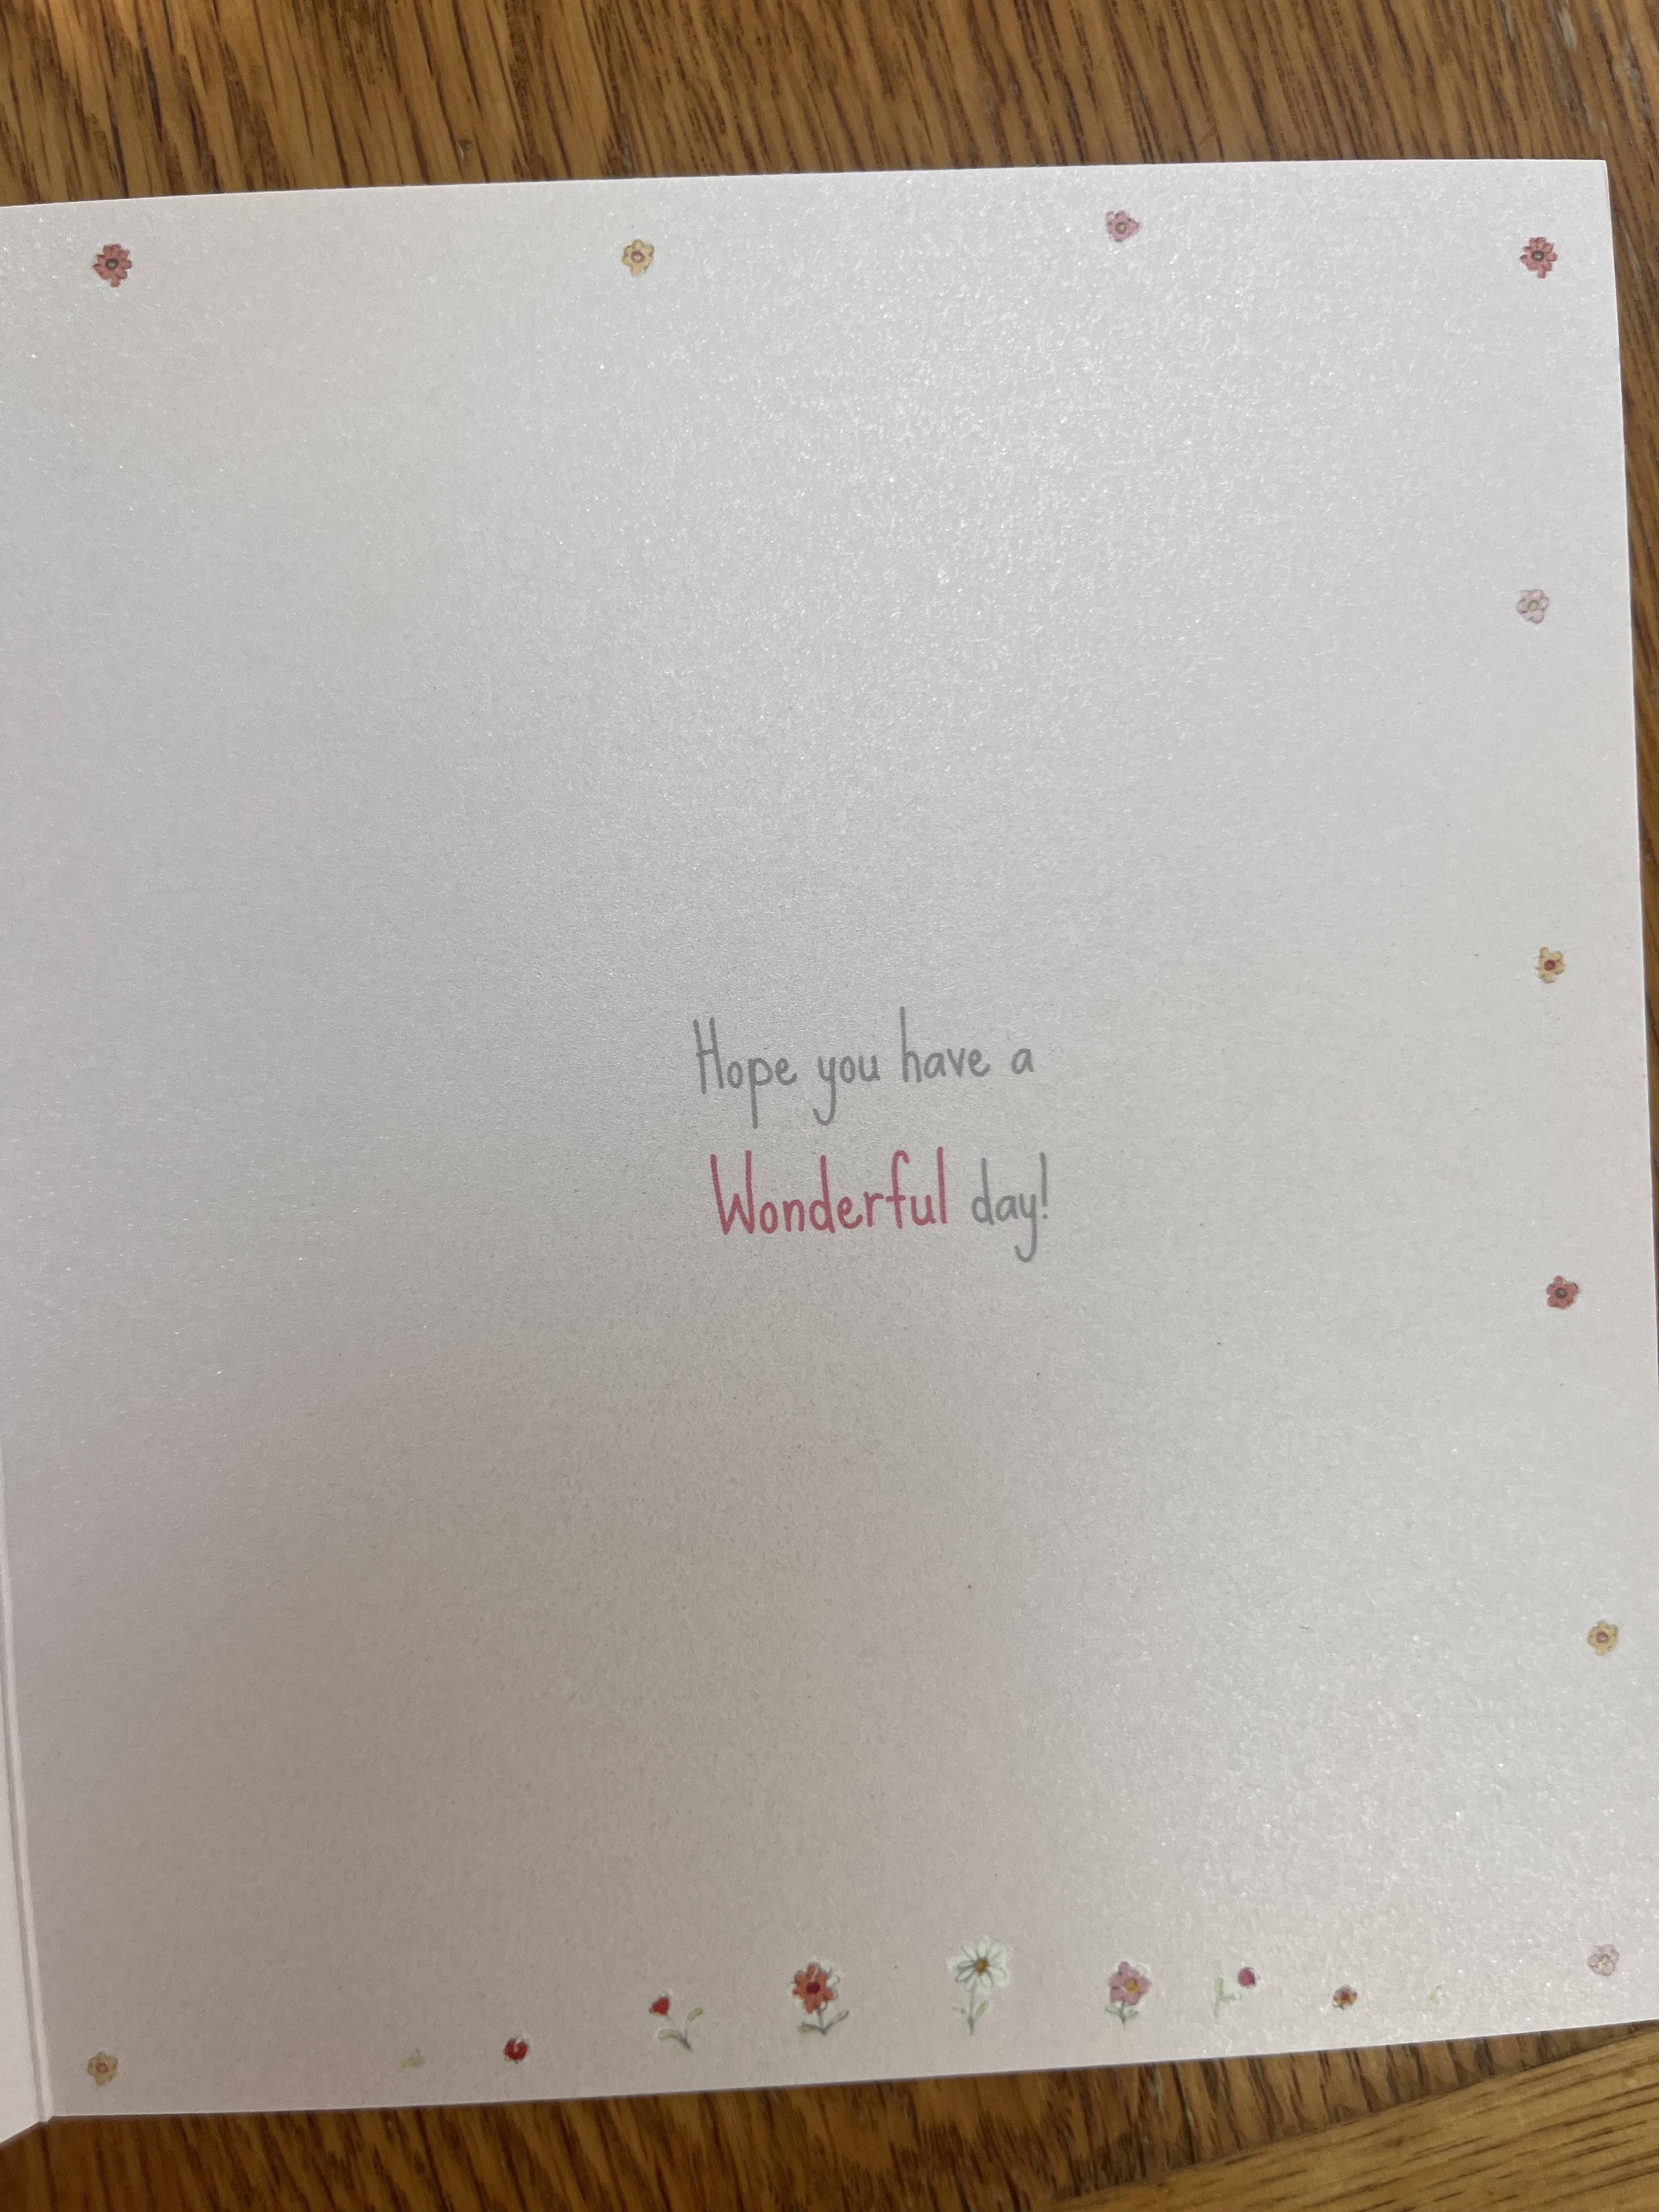 Hope you have a
Wonderful day!